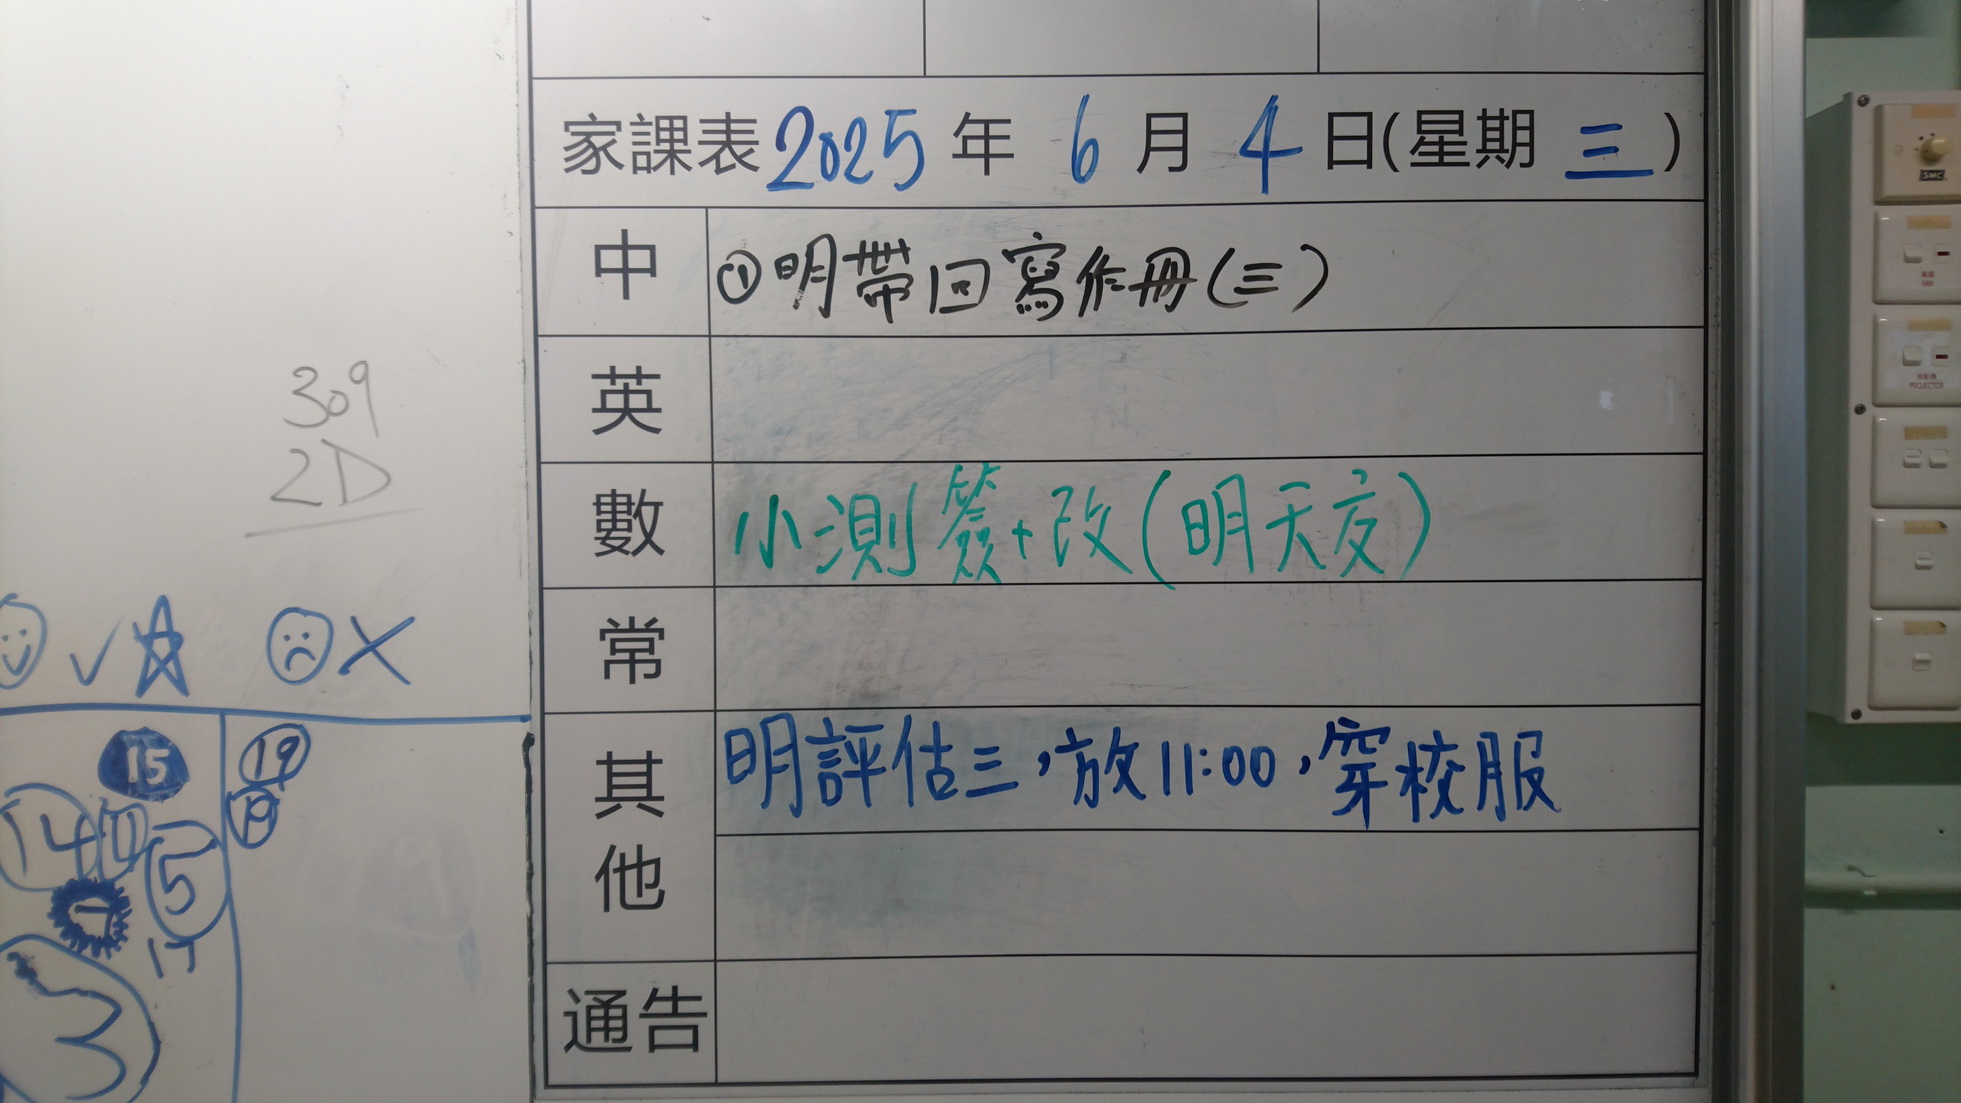 家課表 2025 年 6 月 4 日(星期 三)
中 ①明帶回寫作冊(三)
英
數 小測簽+改(明天交)
常
其他 明評估三,放11:00,穿校服
通告
309
2D
15
19
14
11
19
5
1
17
3
SMC
PROJECTOR